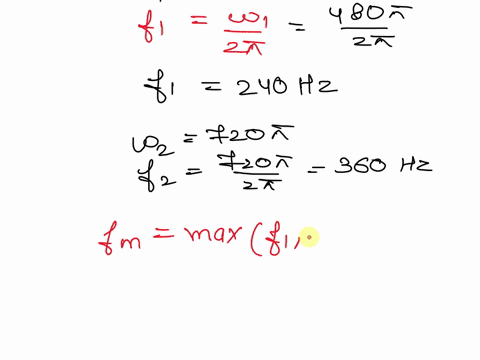 f1 = ω1/2π = 480π/2π
f1 = 240 Hz
ω2 = 720π
f2 = 720π/2π = 360 Hz
fm = max (f1,